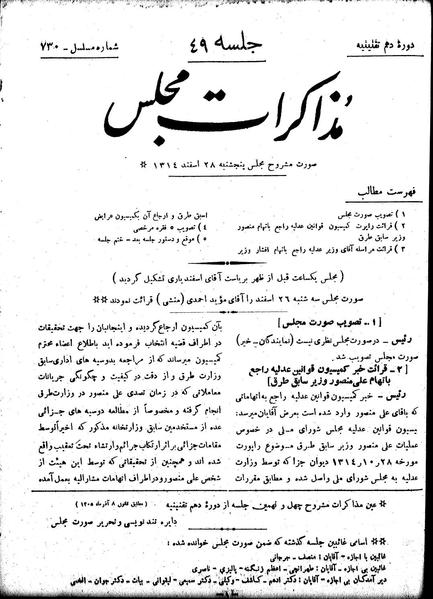 دورهٔ دهم تقنینیه
جلسه ۴۹
شماره مسلسل - ۷۳۰
مذاکرات مجلس
صورت مشروح مجلس پنجشنبه ۲۸ اسفند ۱۳۱۴ ※
فهرست مطالب
۱ ) تصویب صورت مجلس
۲ ) قرائت راپرت کمیسیون قوانین عدلیه راجع باتهام منصور
وزیر سابق طرق
۳ ) قرائت مراسله آقای وزیر عدلیه راجع باتهام افشار وزیر
اسبق طرق و ارجاع آن بکمیسیون عرایض
۴ ) تصویب ۵ فقره مرخصی
۵ ) موقع و دستور جلسه بعد - ختم جلسه
( مجلس یکساعت قبل از ظهر بریاست آقای اسفندیاری تشکیل گردید )
صورت مجلس سه شنبه ۲۶ اسفند را آقای مؤید احمدی (منشی) قرائت نمودند ※※
[ ۱ - تصویب صورت مجلس ]
رئیس - در صورت مجلس نظری نیست (نمایندگان - خیر)
صورت مجلس تصویب شد.
[ ۲ - قرائت خبر کمیسیون قوانین عدلیه راجع
باتهام علی منصور وزیر سابق طرق ]
رئیس - خبر کمیسیون قوانین عدلیه راجع به اتهاماتی
که باقای علی منصور وارد شده است بعرض آقایان میرسد:
کمیسیون قوانین عدلیه مجلس شورای ملی در خصوص
عملیات علی منصور وزیر سابق طرق موضوع راپورت
مورخه ۲۸ ر ۱۰ ر ۱۳۱۴ دیوان جزا که توسط وزارت
عدلیه به مجلس شورای ملی واصل شده و مطابق مقررات
بآن کمیسیون ارجاع گردیده و اینجانبان را جهت تحقیقات
در اطراف قضیه انتخاب فرموده اید باطلاع اعضاء محترم
کمیسیون میرساند که از مراجعه بدوسیه های اداری سابق
وزارت طرق و از دقت در کیفیت و چگونگی جریانات
معاملاتی که در زمان تصدی علی منصور در وزارت طرق
انجام گرفته و مخصوصاً از مطالعه دوسیه های جزائی
عده از مستخدمین سابق وزارتخانه مذکور که اخیراً توسط
مقامات جزائی بر اثر ارتکاب جرم وارتشاء تحت تعقیب واقع
شده اند و همچنین از تحقیقاتی که توسط این هیئت از
شخص علی منصور و در اطراف اتهامات مشارالیه بعمل آمده
※ عین مذاکرات مشروح چهل و نهمین جلسه از دورهٔ دهم تقنینیه
(مطابق قانون ۸ آذرماه ۱۳۰۵)
دایره تند نویسی و تحریر صورت مجلس
※※ اسامی غائبین جلسه گذشته که ضمن صورت مجلس خوانده شده :
غائبین با اجازه - آقایان : منصف - جرجانی
غائبین بی اجازه - آقایان : طهرانچی - اعظم زنگنه - پالیزی - ناصری
دیر آمدگان بی اجازه - آقایان : دکتر ادهم - کاشف - وکیلی - دکتر سمیعی - لیقوانی - بیات - دکتر جوان -